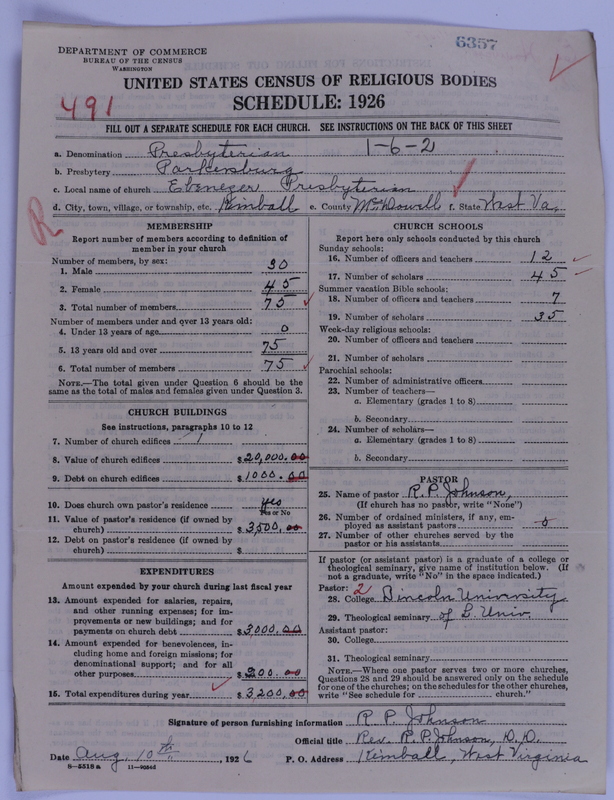 6357
DEPARTMENT OF COMMERCE
BUREAU OF THE CENSUS
WASHINGTON
UNITED STATES CENSUS OF RELIGIOUS BODIES
SCHEDULE: 1926
491
FILL OUT A SEPARATE SCHEDULE FOR EACH CHURCH. SEE INSTRUCTIONS ON THE BACK OF THIS SHEET
a. Denomination Presbyterian 1-6-2
b. Presbytery Parkersburg
c. Local name of church Ebenezer Presbyterian
d. City, town, village, or township, etc. Kimball e. County McDowell f. State West Va.
R
MEMBERSHIP
Report number of members according to definition of
member in your church
Number of members, by sex:
1. Male 30
2. Female 45
3. Total number of members 75
Number of members under and over 13 years old:
4. Under 13 years of age 0
5. 13 years old and over 75
6. Total number of members 75
NOTE.—The total given under Question 6 should be
same as the total of males and females given under Question 3.
CHURCH BUILDINGS
See instructions, paragraphs 10 to 12
7. Number of church edifices 1
8. Value of church edifices $20,000.00
9. Debt on church edifices $1000.00
10. Does church own pastor's residence yes
Yes or No
11. Value of pastor's residence (if owned by
church) $3,500.00
12. Debt on pastor's residence (if owned by
church) $
EXPENDITURES
Amount expended by your church during last fiscal year
13. Amount expended for salaries, repairs,
and other running expenses; for im-
provements or new buildings; and for
payments on church debt $3,000.00
14. Amount expended for benevolences, in-
cluding home and foreign missions; for
denominational support; and for all
other purposes 200.00
15. Total expenditures during year $3,200.00
CHURCH SCHOOLS
Report here only schools conducted by this church
Sunday schools:
16. Number of officers and teachers 12
17. Number of scholars 45
Summer vacation Bible schools:
18. Number of officers and teachers 7
19. Number of scholars 35
Week-day religious schools:
20. Number of officers and teachers
21. Number of scholars
Parochial schools:
22. Number of administrative officers
23. Number of teachers—
a. Elementary (grades 1 to 8)
b. Secondary
24. Number of scholars—
a. Elementary (grades 1 to 8)
b. Secondary
PASTOR
25. Name of pastor R. P. Johnson,
(If church has no pastor, write "None")
26. Number of ordained ministers, if any, em-
ployed as assistant pastors 0
27. Number of other churches served by the
pastor or his assistants
If pastor (or assistant pastor) is a graduate of a college or
theological seminary, give name of institution below. (If
not a graduate, write "No" in the space indicated.)
Pastor: 2
28. College Lincoln University
29. Theological seminary of L. Univ.
Assistant pastor:
30. College
31. Theological seminary
NOTE.—Where one pastor serves two or more churches,
Questions 28 and 29 should be answered only on the schedule
for one of the churches; on the schedules for the other churches,
write "See schedule for church."
Signature of person furnishing information R. P. Johnson
Official title Rev. R. P. Johnson, D. D.
Date Aug. 10th, 1926 P. O. Address Kimball, West Virginia
8-5518a